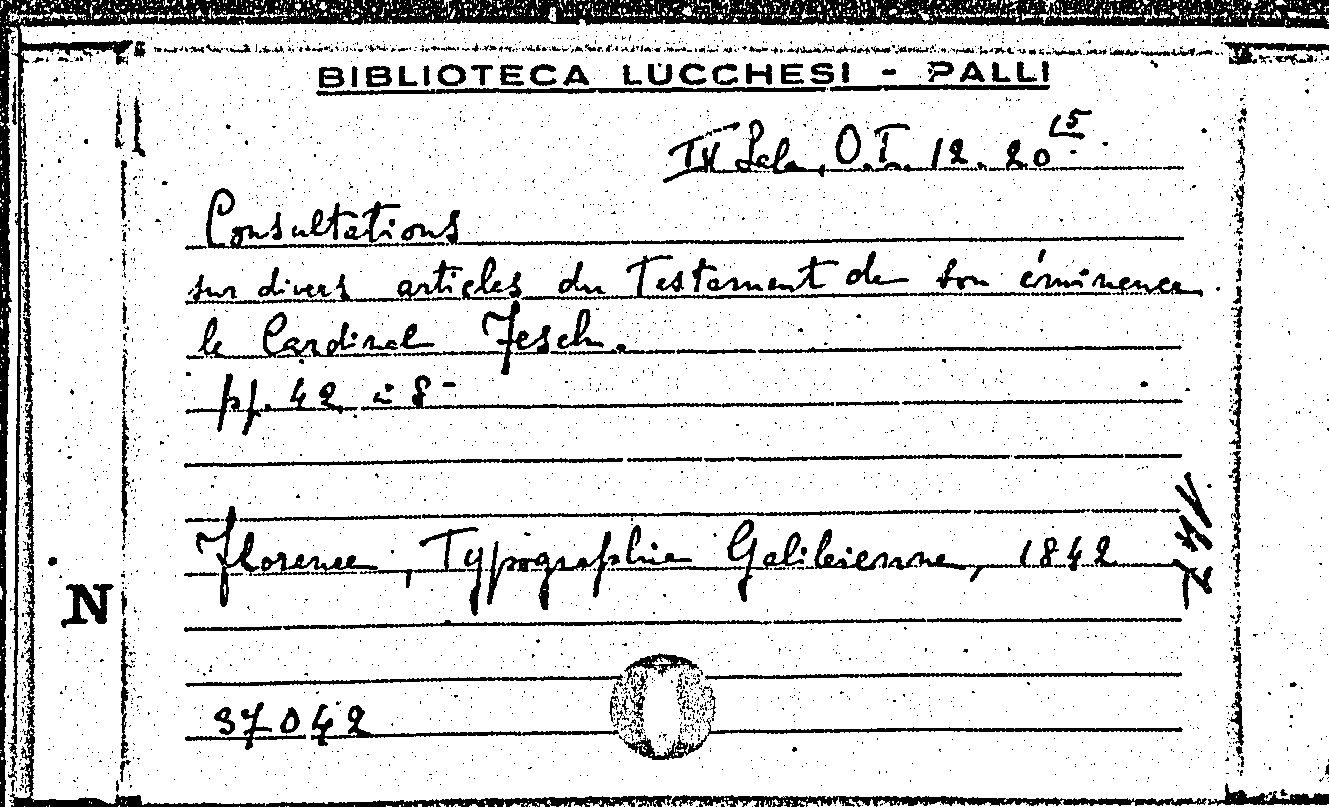 BIBLIOTECA LUCCHESI - PALLI
IV Sala, O.T. 12. 20 15
Consultations
sur divers articles du Testament de son éminence
le Cardinal Fesch.
pp. 42 in 8-
Florence, Typographie Galiléienne, 1842
N
37042